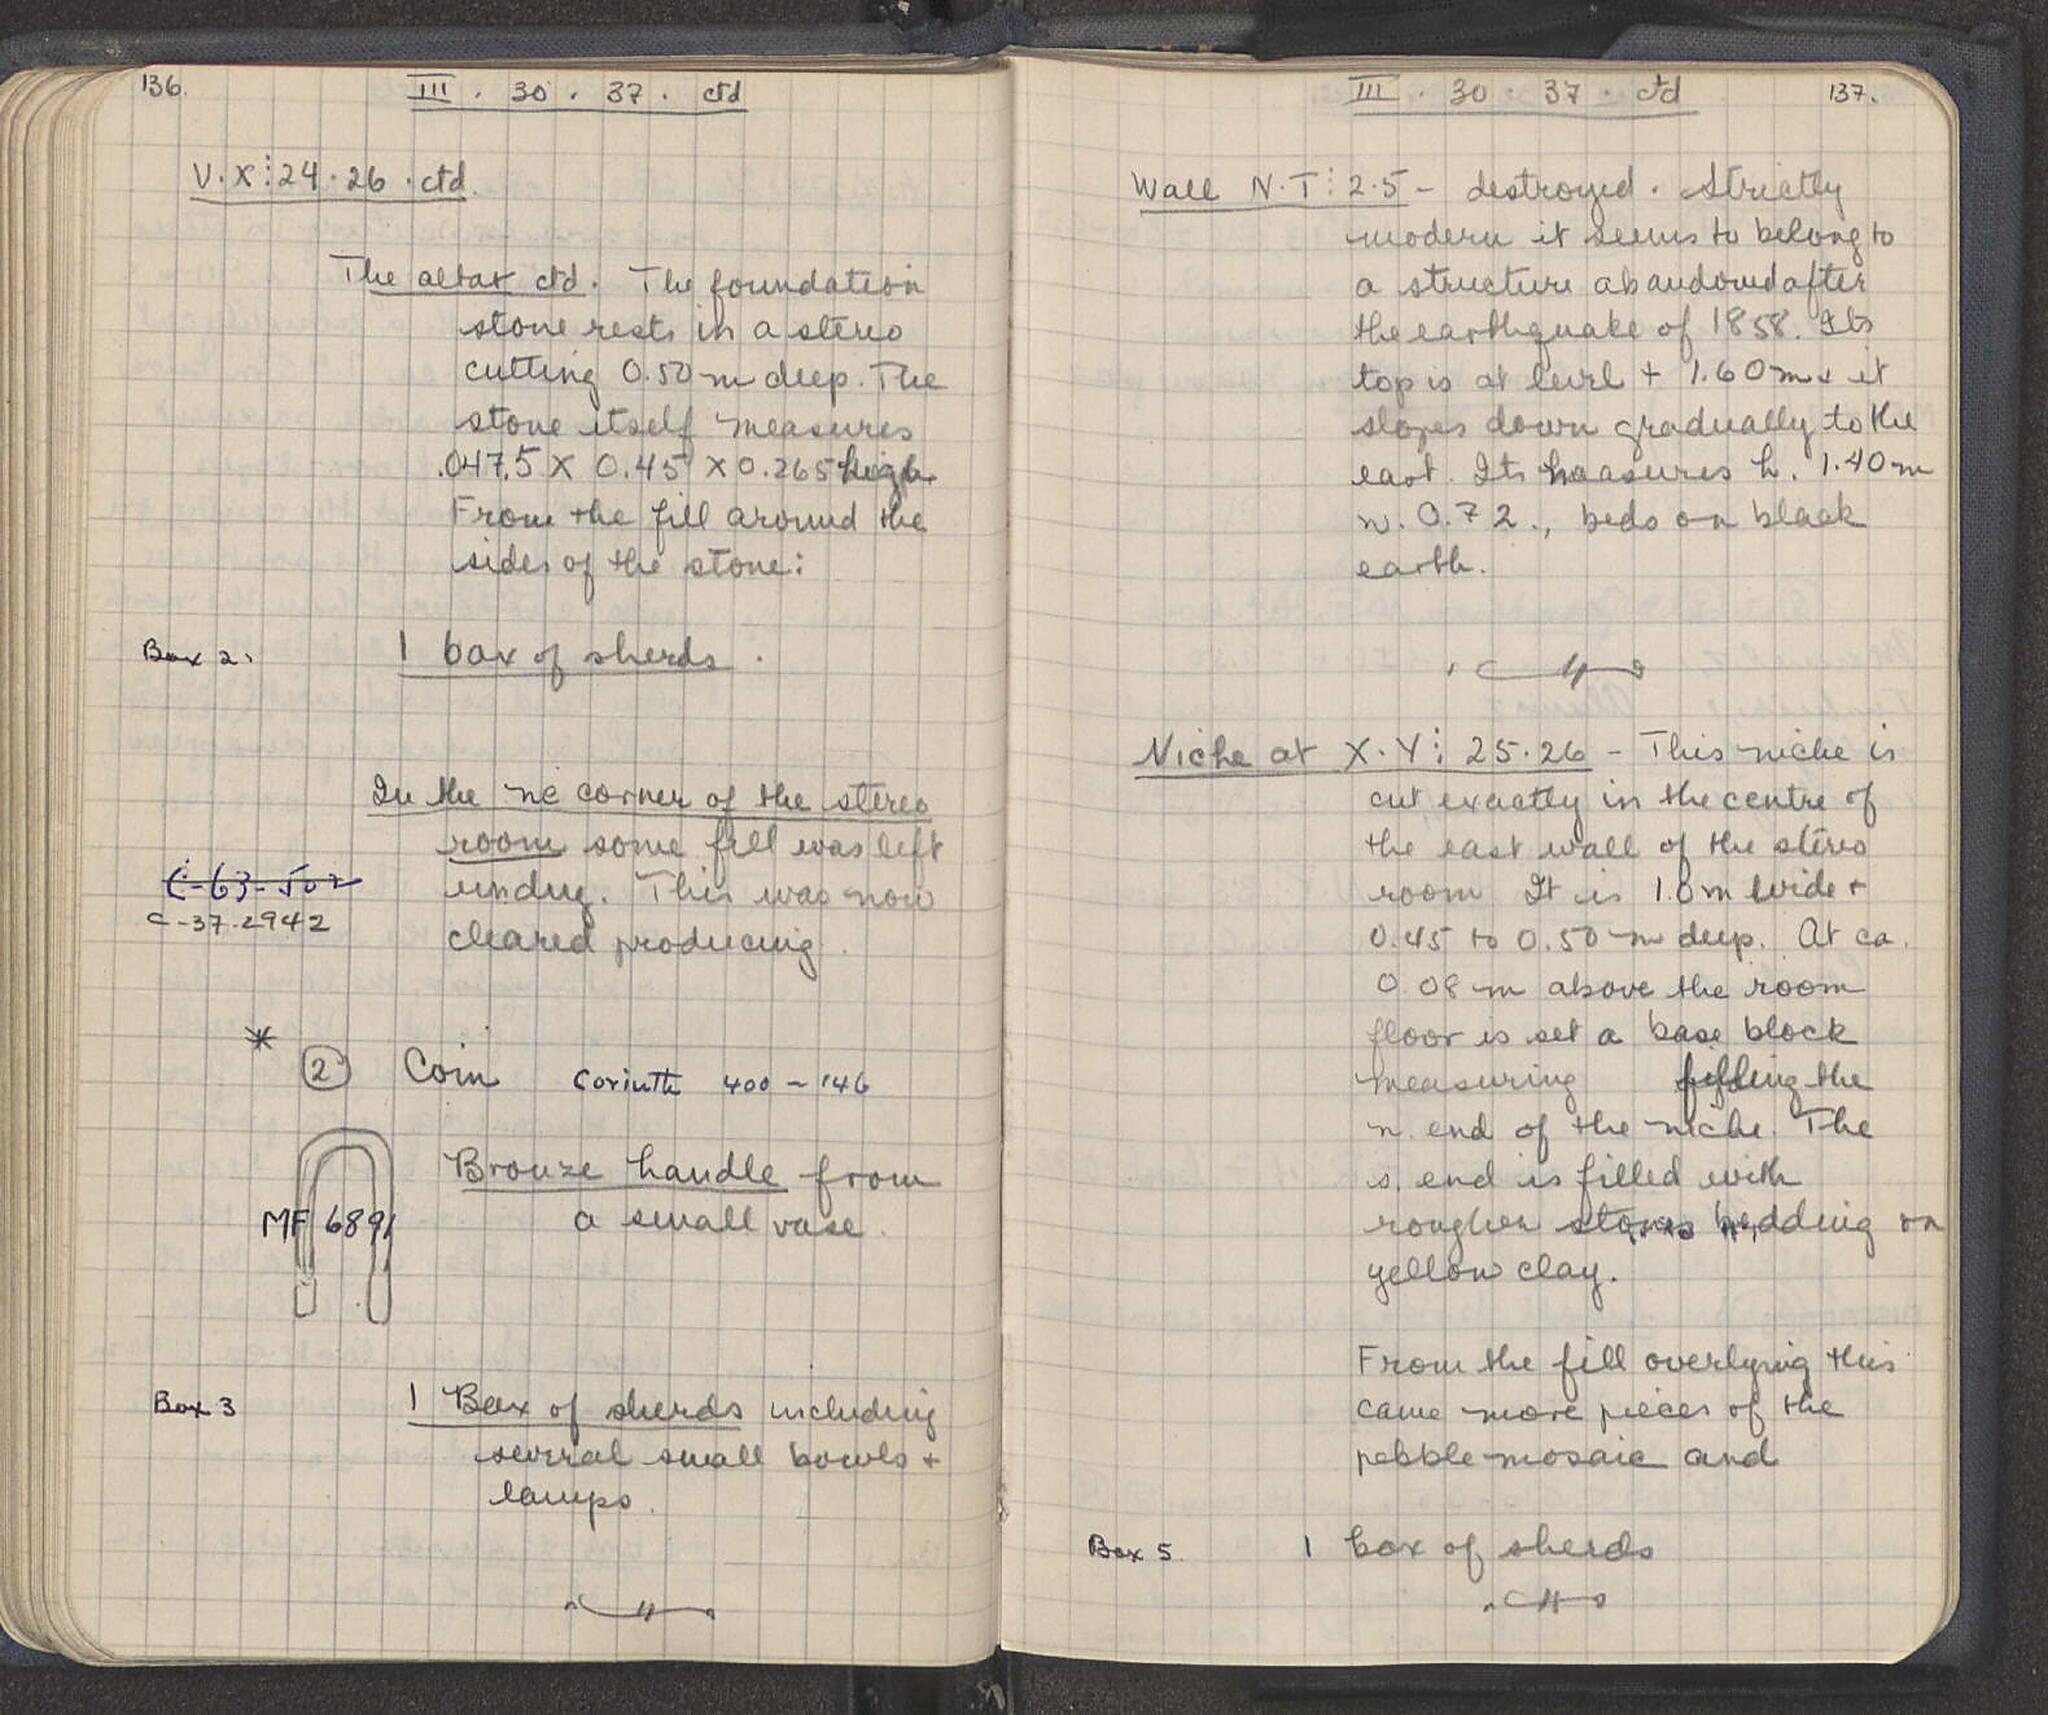 136.
III . 30 . 37 . ctd
V.X⋮24.26 . ctd.
The altar ctd. The foundation
stone rests in a stereo
cutting 0.50 m deep. The
stone itself measures
.047.5 X 0.45 X 0.265 high.
From the fill around the
sides of the stone:
Box 2.
1 box of sherds.
In the ne corner of the stereo
room some fill was left
undug. This was now
cleared producing.
C-63-502
C-37-2942
*
② Coin Corinth 400-146
Bronze handle from
a small vase.
MF 6891
Box 3
1 Box of sherds including
several small bowls +
lamps.
III . 30 . 37 . ctd
137.
Wall N.T⋮2.5 - destroyed. Strictly
modern it seems to belong to
a structure abandoned after
the earthquake of 1858. Its
top is at level + 1.60 m + it
slopes down gradually to the
east. Its measures h. 1.40 m
w. 0.72., beds on black
earth.
Niche at X.Y⋮ 25.26 - This niche is
cut exactly in the centre of
the east wall of the stereo
room It is 1.0 m wide +
0.45 to 0.50 m deep. At ca.
0.08 m above the room
floor is set a base block
measuring filling the
n. end of the niche. The
s. end is filled with
rougher stones bedding on
yellow clay.
From the fill overlying this
came more pieces of the
pebble mosaic and
Box 5.
1 box of sherds